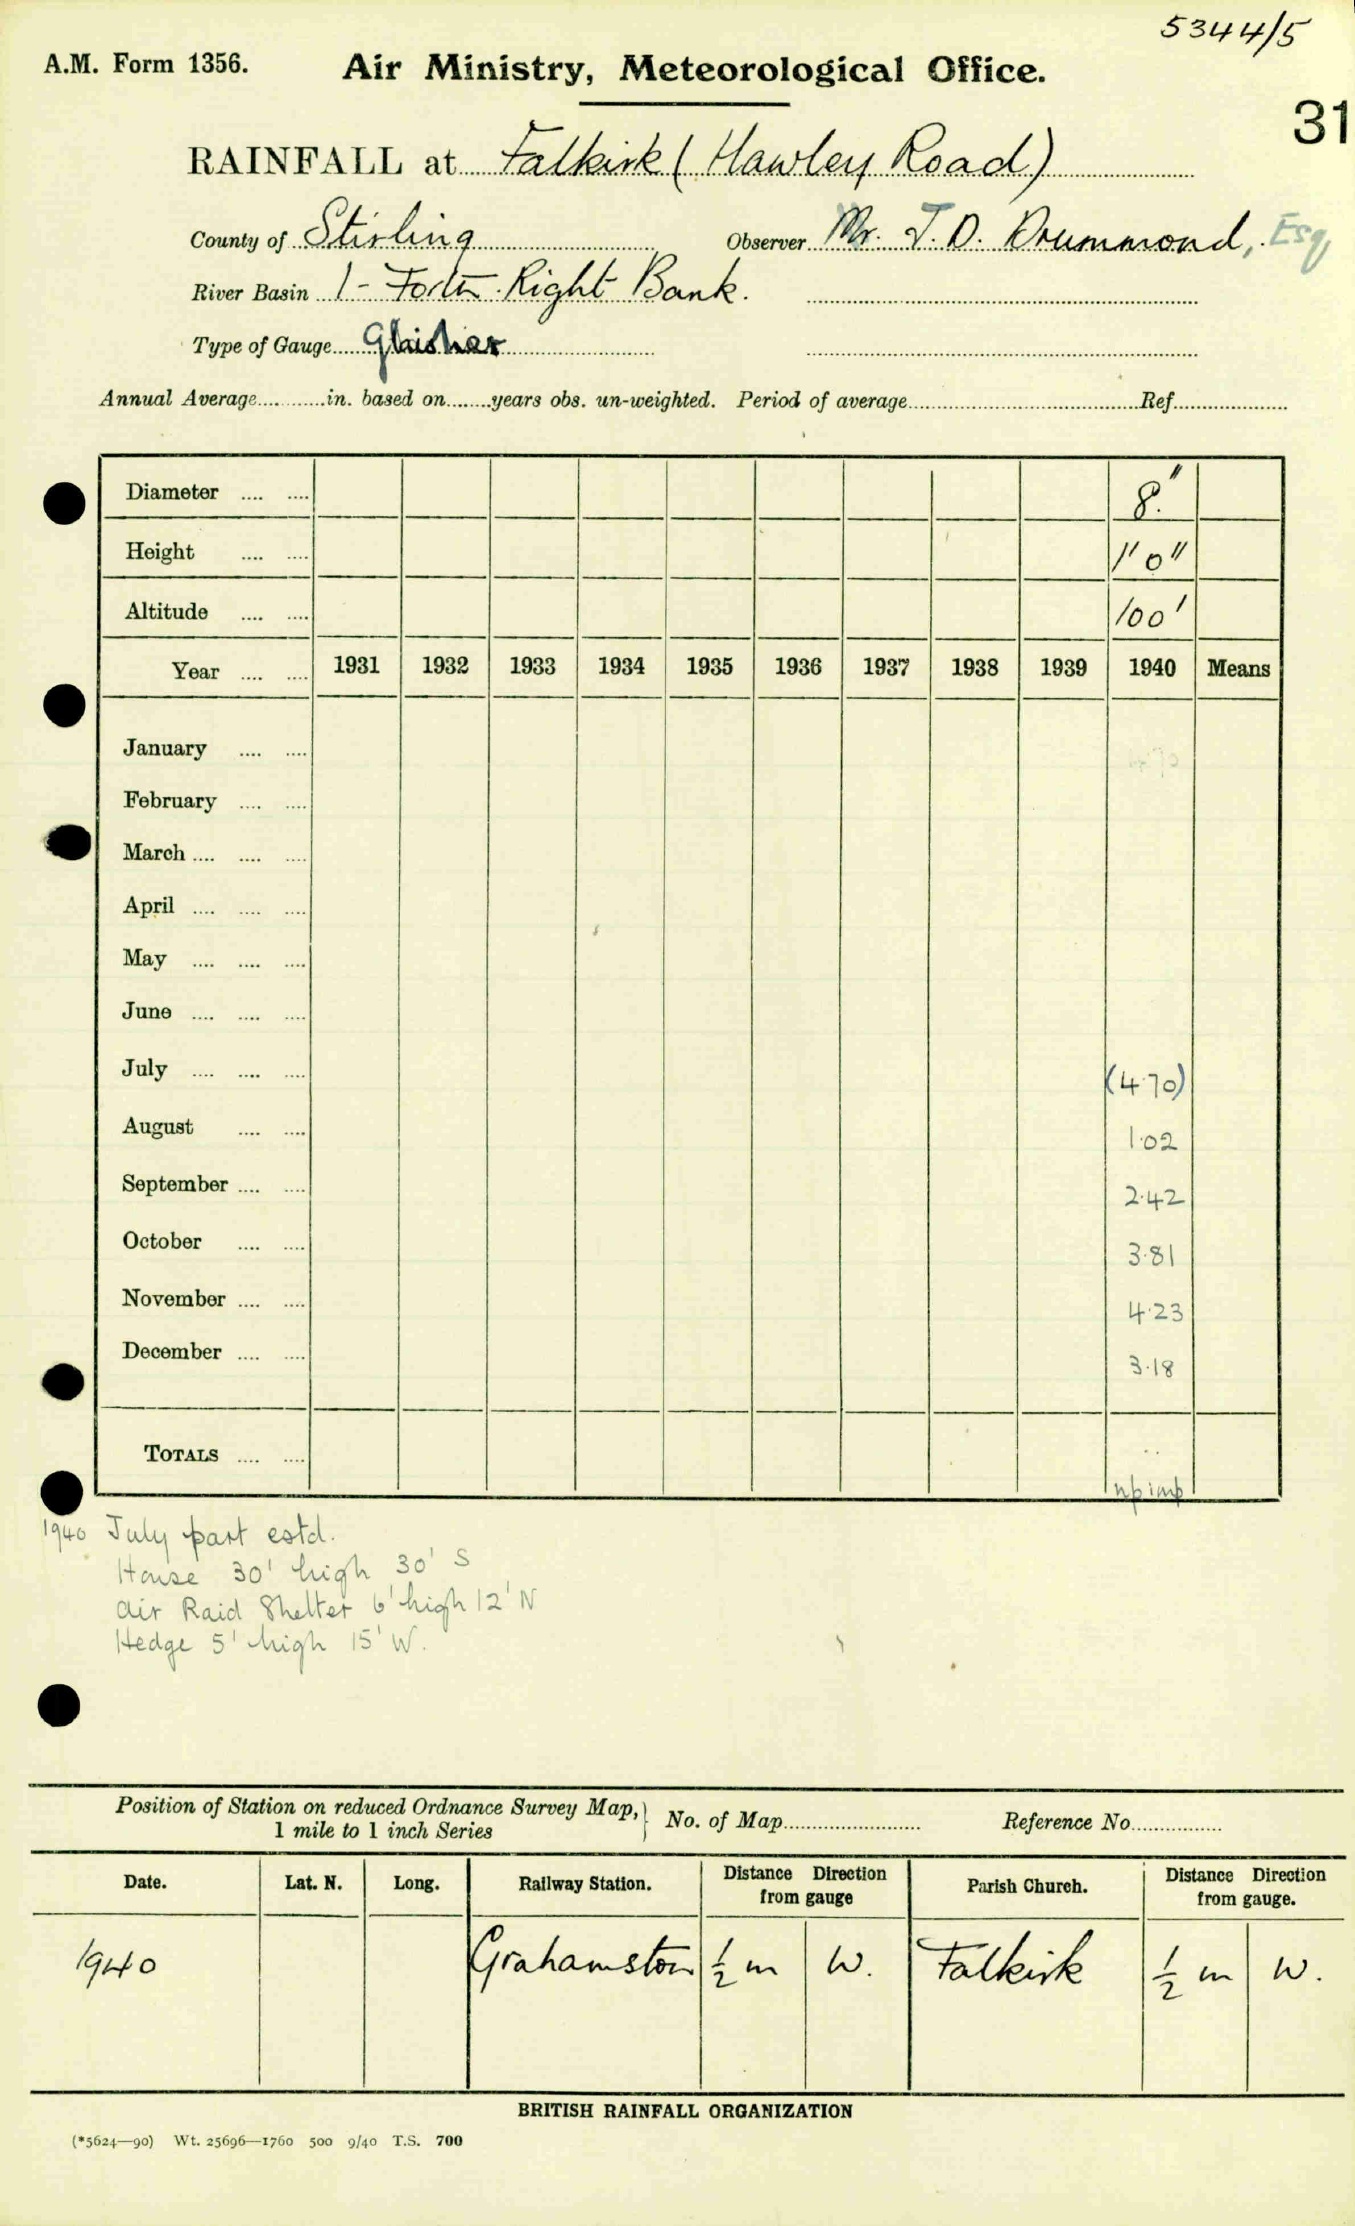 5344/5
A.M. Form 1356. Air Ministry, Meteorological Office.
31
RAINFALL at Falkirk (Hawley Road)
County of Stirling Observer Mr. J. D. Drummond, Esq
River Basin 1 - Forth Right Bank.
Type of Gauge Glaisher
Annual Average in. based on years obs. un-weighted. Period of average Ref
Diameter 8."
Height 1' 0"
Altitude 100'
Year 1931 1932 1933 1934 1935 1936 1937 1938 1939 1940 Means
January
February
March
April
May
June
July (4.70)
August 1.02
September 2.42
October 3.81
November 4.23
December 3.18
TOTALS
np imp
1940 July part estd.
House 30' high 30' S
Air Raid Shelter 6' high 12' N
Hedge 5' high 15' W.
Position of Station on reduced Ordnance Survey Map, 1 mile to 1 inch Series } No. of Map Reference No.
Date. Lat. N. Long. Railway Station. Distance Direction from gauge Parish Church. Distance Direction from gauge.
1940 Grahamston ½ m W. Falkirk ½ m W.
BRITISH RAINFALL ORGANIZATION
(*5624—90) Wt. 25696—1760 500 9/40 T.S. 700